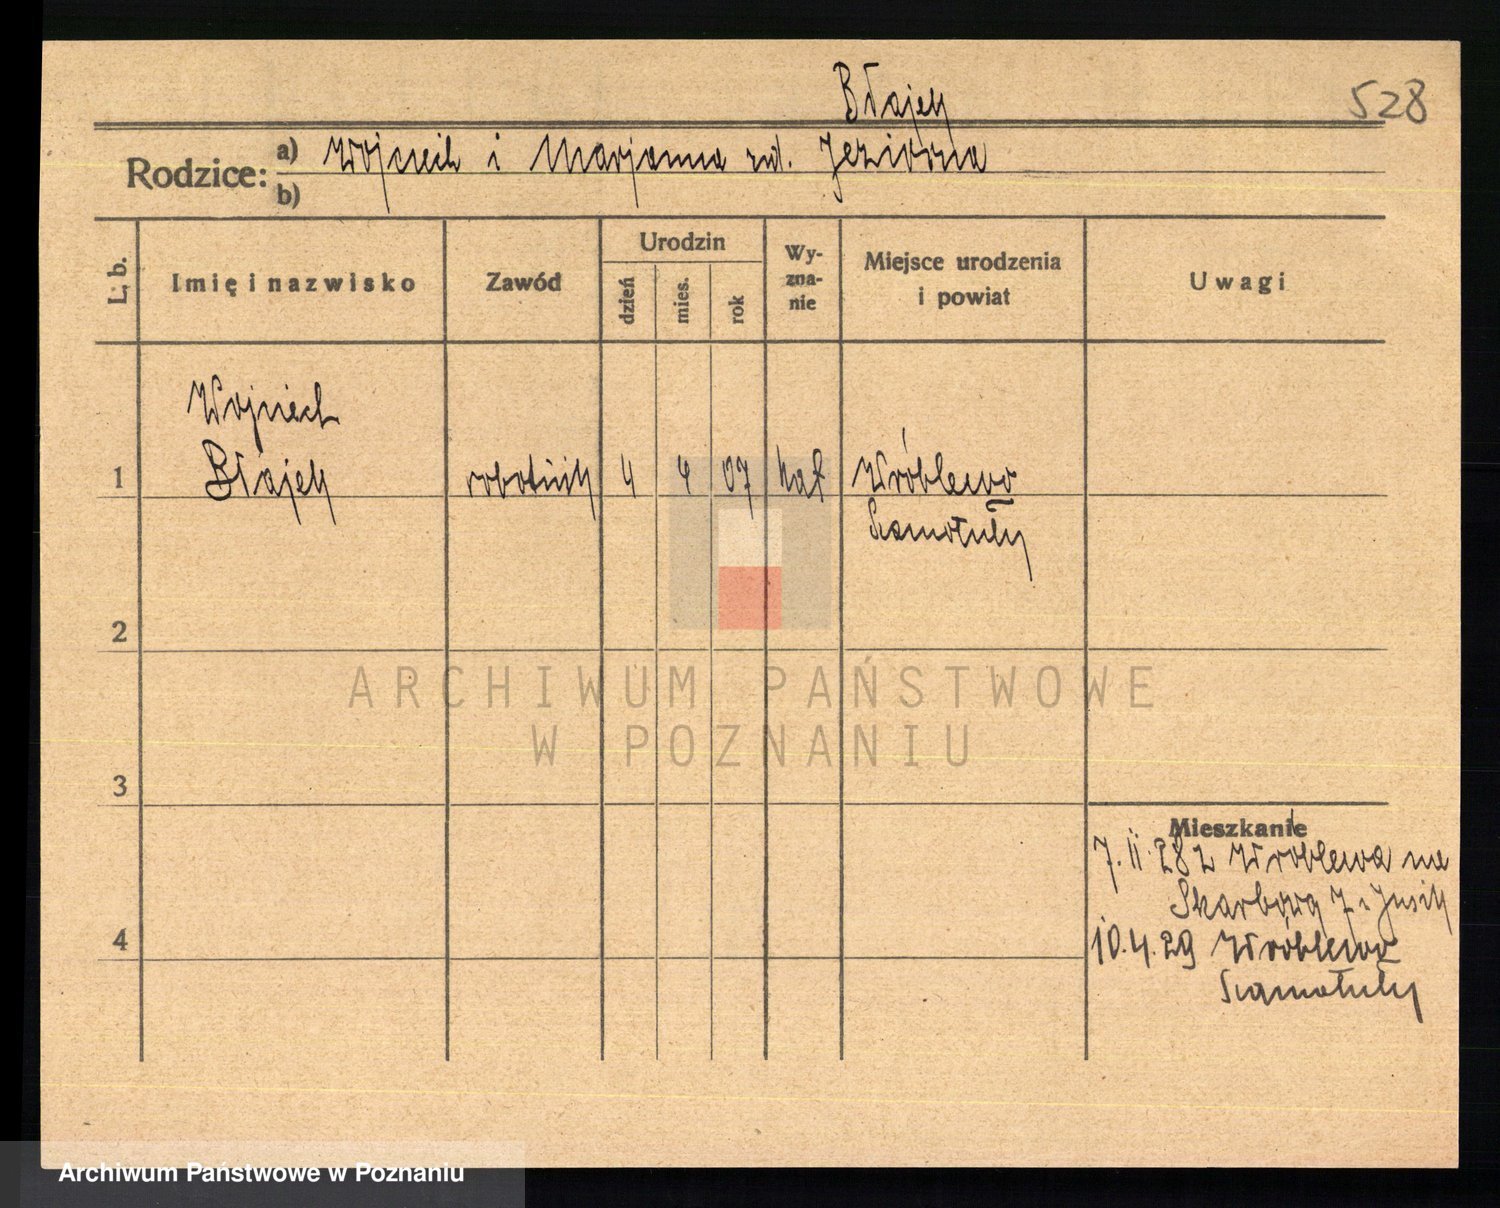 Błajek
528
Rodzice:
a) Wojciech i Marjanna zd. Jeziorna
b)
L. b.
Imię i nazwisko
Zawód
Urodzin
dzień
mies.
rok
Wy-
zna-
nie
Miejsce urodzenia
i powiat
Uwagi
Wojciech
1 Błajek robotnik 4 4 07 kat Wróblewo
Szamotuły
2
ARCHIWUM PAŃSTWOWE
W POZNANIU
3
Mieszkanie
7.II.28 z Wróblewa na
Skarbową 7
4 10.4.29 Wróblewo
Szamotuły
Archiwum Państwowe w Poznaniu